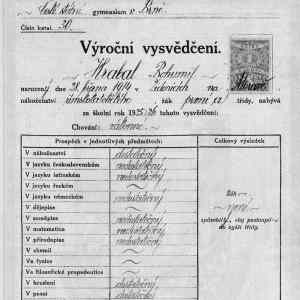 české státní gymnasium v Brně
Číslo katal. 20.
Výroční vysvědčení.
Hrabal Bohumil
narozený dne 28. března 1914 v Židenicích na Moravě
náboženství římskokatolického žák první třídy, nabývá
za školní rok 1925/26 tohoto vysvědčení:
Chování: zákonné
Prospěch v jednotlivých předmětech: Celkový výsledek
V náboženství dostatečný
V jazyku československém nedostatečný
V jazyku latinském nedostatečný
V jazyku řeckém
V jazyku německém nedostatečný
V dějepise
V zeměpise nedostatečný
V matematice nedostatečný
V přírodopise nedostatečný
V chemii
Ve fysice
Ve filosofické propedeutice
V kreslení
V psaní
Žák
není
způsobilý, aby postoupil
do vyšší třídy.